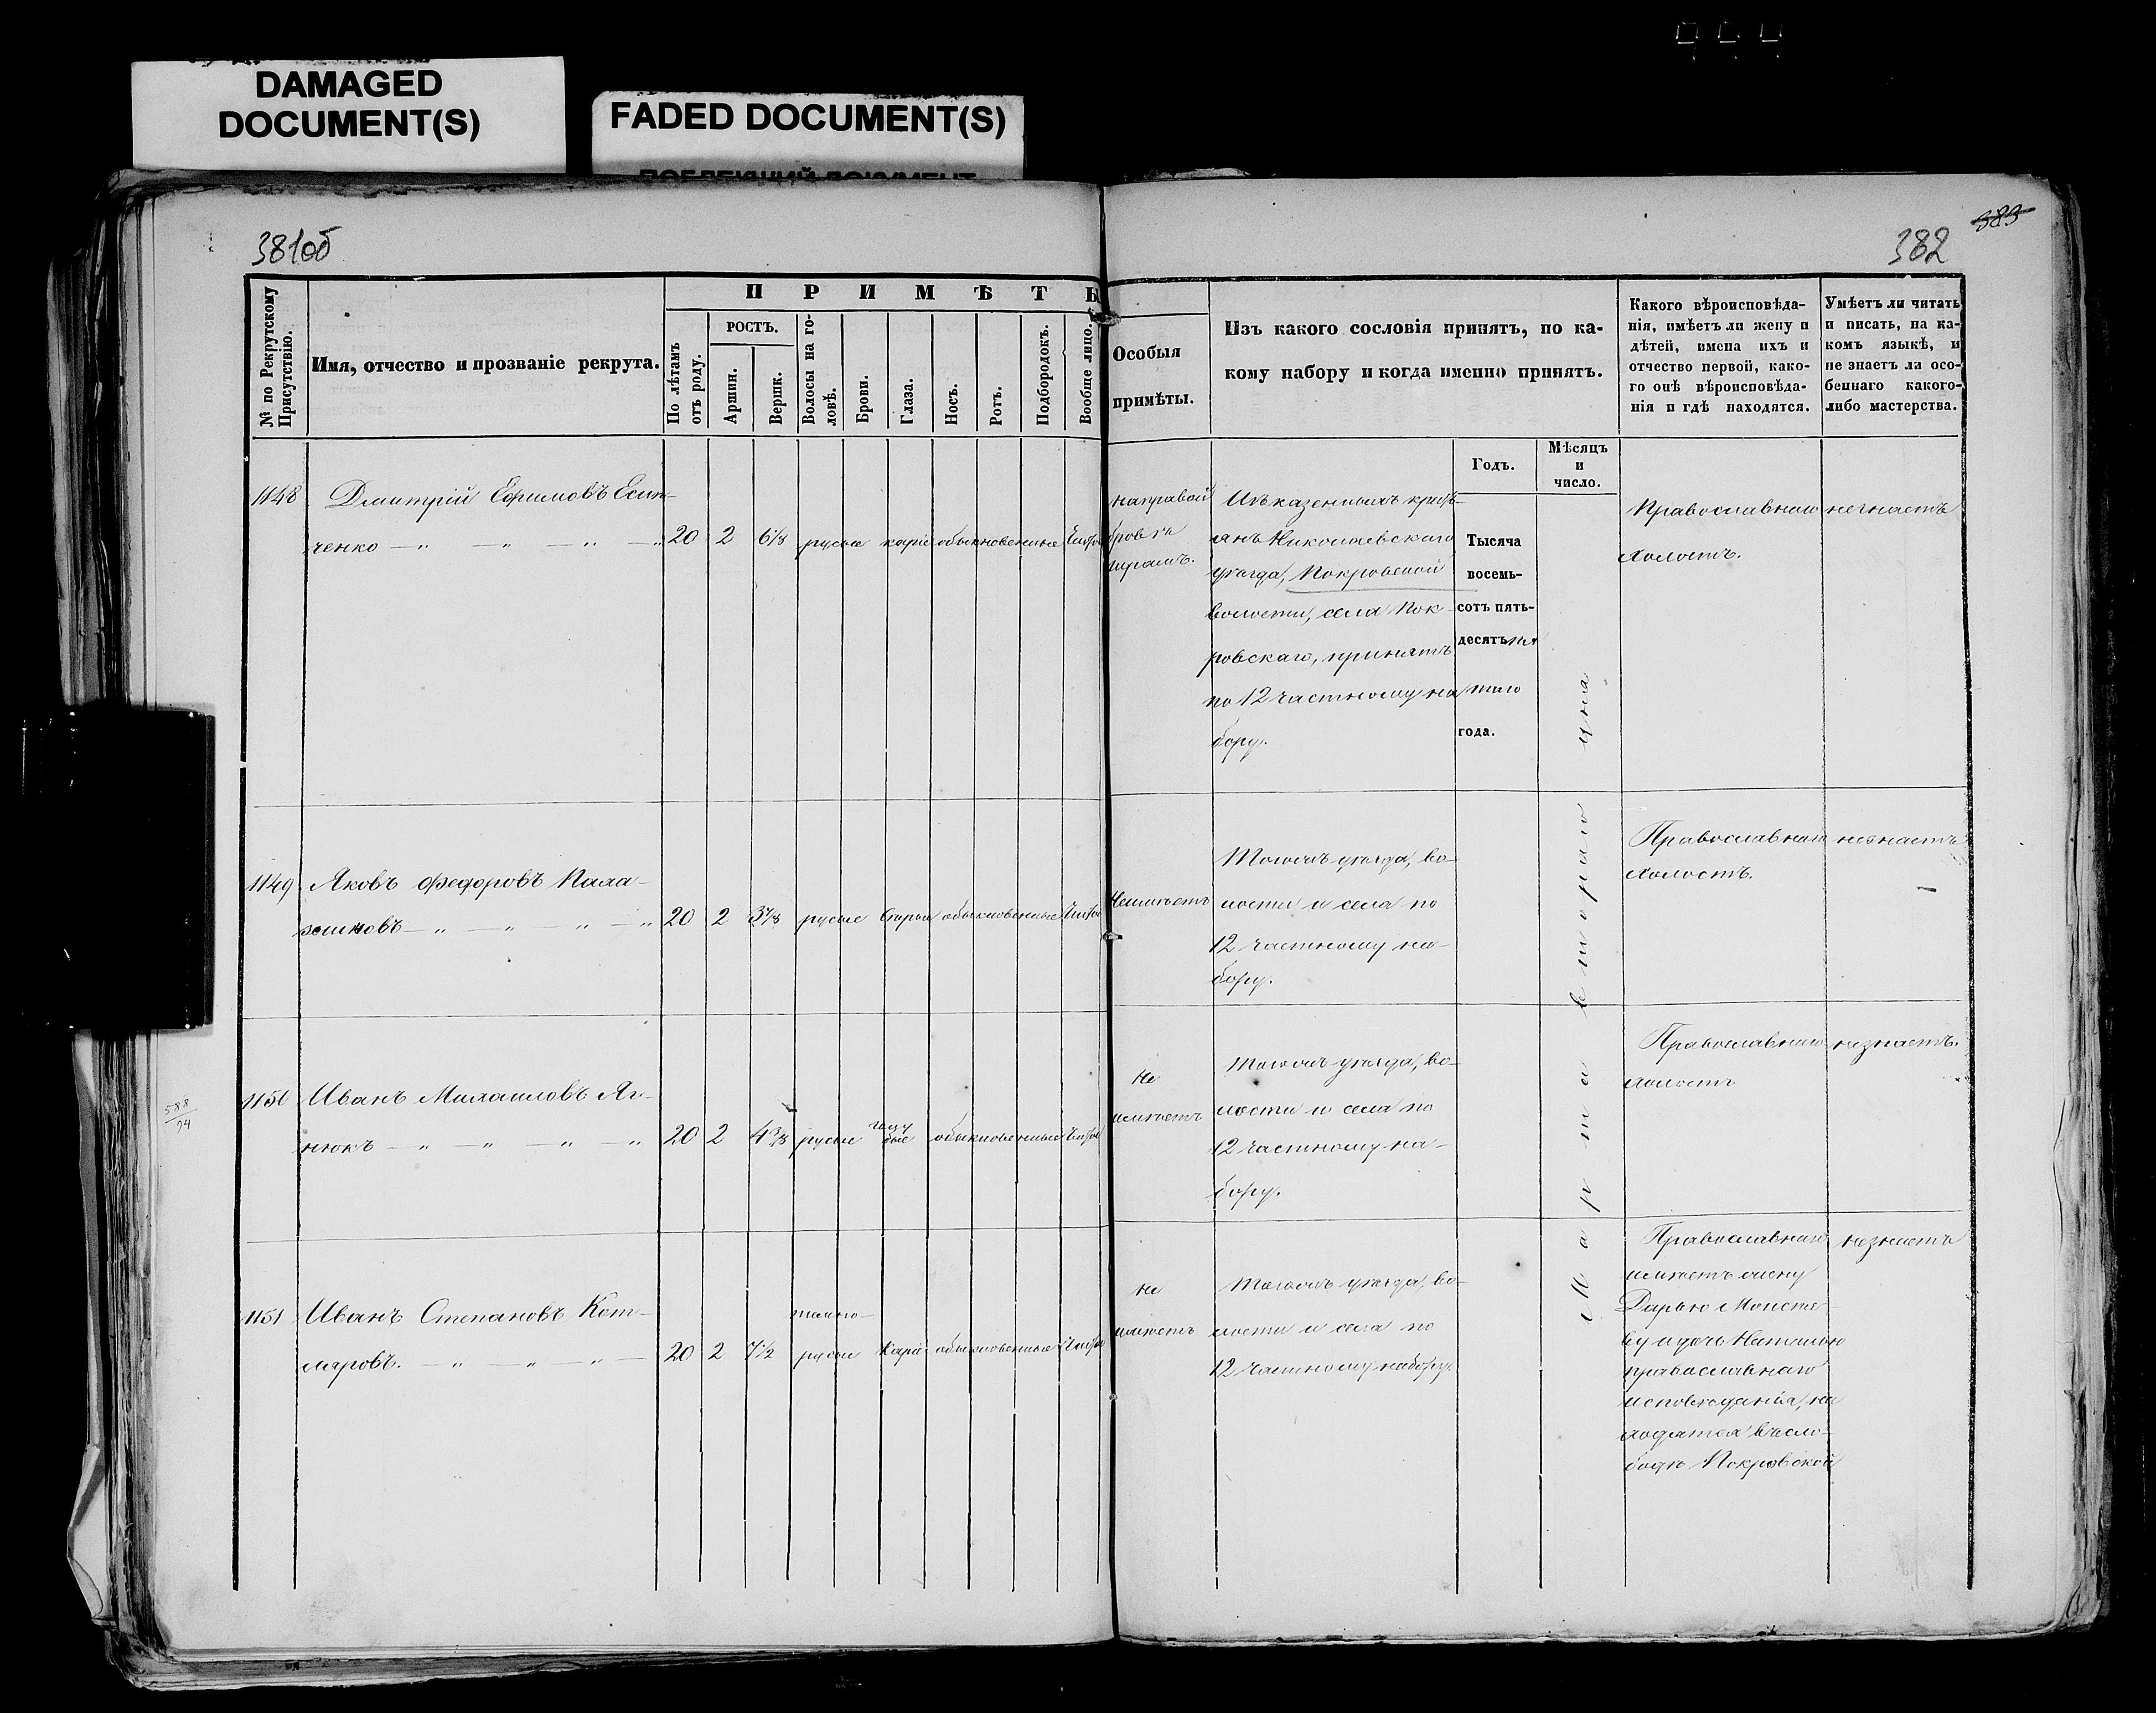 DAMAGED
DOCUMENT(S)
FADED DOCUMENT(S)
381об
382
383
№ по Рекрутскому Присутствію.
Имя, отчество и прозваніе рекрута.
ПРИМѢТЫ
По лѣтамъ отъ роду.
РОСТЪ.
Аршин.
Вершк.
Волосы на головѣ.
Брови.
Глаза.
Носъ.
Ротъ.
Подбородокъ.
Вообще лицо.
Особыя
примѣты.
Изъ какого сословія принятъ, по ка-
кому набору и когда именно принятъ.
Какого вѣроисповѣда-
нія, имѣетъ ли жену и
дѣтей, имена ихъ и
отчество первой, како-
го онѣ вѣроисповѣда-
нія и гдѣ находятся.
Умѣетъ ли читать
и писать, на ка-
комъ языкѣ, и
не знаетъ ли осо-
беннаго какого-
либо мастерства.
Годъ.
Мѣсяцъ
и
число.
1148
Дмитрій Ефимовъ Есип-
ченко
20 2 6 1/8 русые карie обыкновенные
на правой
брови
шрамъ.
Изъ казенныхъ кресть-
янъ Николаевскаго
уѣзда, Покровской
волости, села Пок-
ровскаго, принятъ
по 12 частному на
бору.
Тысяча
восемь-
сотъ пять-
десятъ пя
таго
года.
Марта втораго
Православнаго
холостъ.
незнаетъ
1149
Яковъ Федоровъ Пала-
20 2 3 7/8 русые обыкновенные
Неимѣетъ
Тогожъ уѣзда, во-
лости и села по
12 частному на-
бору.
Православнаго
холостъ.
незнаетъ
1150
588
94
Иванъ Михаиловъ Яг-
нюкъ
20 2 4 3/8 русые голу
бые обыкновенные
Не
имѣетъ
Тогожъ уѣзда, во-
лости и села по
12 частному на-
бору.
Православнаго
холостъ
незнаетъ.
1151
Иванъ Степановъ Кот-
ляровъ.
20 2 7 1/2 темно-
русые карie обыкновенные
Не
имѣетъ
Тогожъ уѣзда, во-
лости и села по
12 частному набору.
Православнаго
имѣетъ жену
Дарью Моисее-
ву и дочь Наталью
православнаго
исповѣданія, на
ходятся въ сло-
бодѣ Покровской
незнаетъ